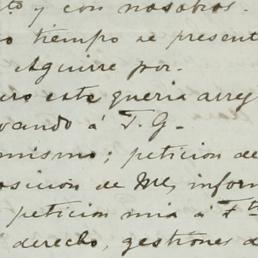 y con nosotros.
tiempo se present
Aguirre por
este queria arreg
á F. G.
mismo; peticion de
posicion de Me, inform
peticion mia á Fto
derecho, gestiones d